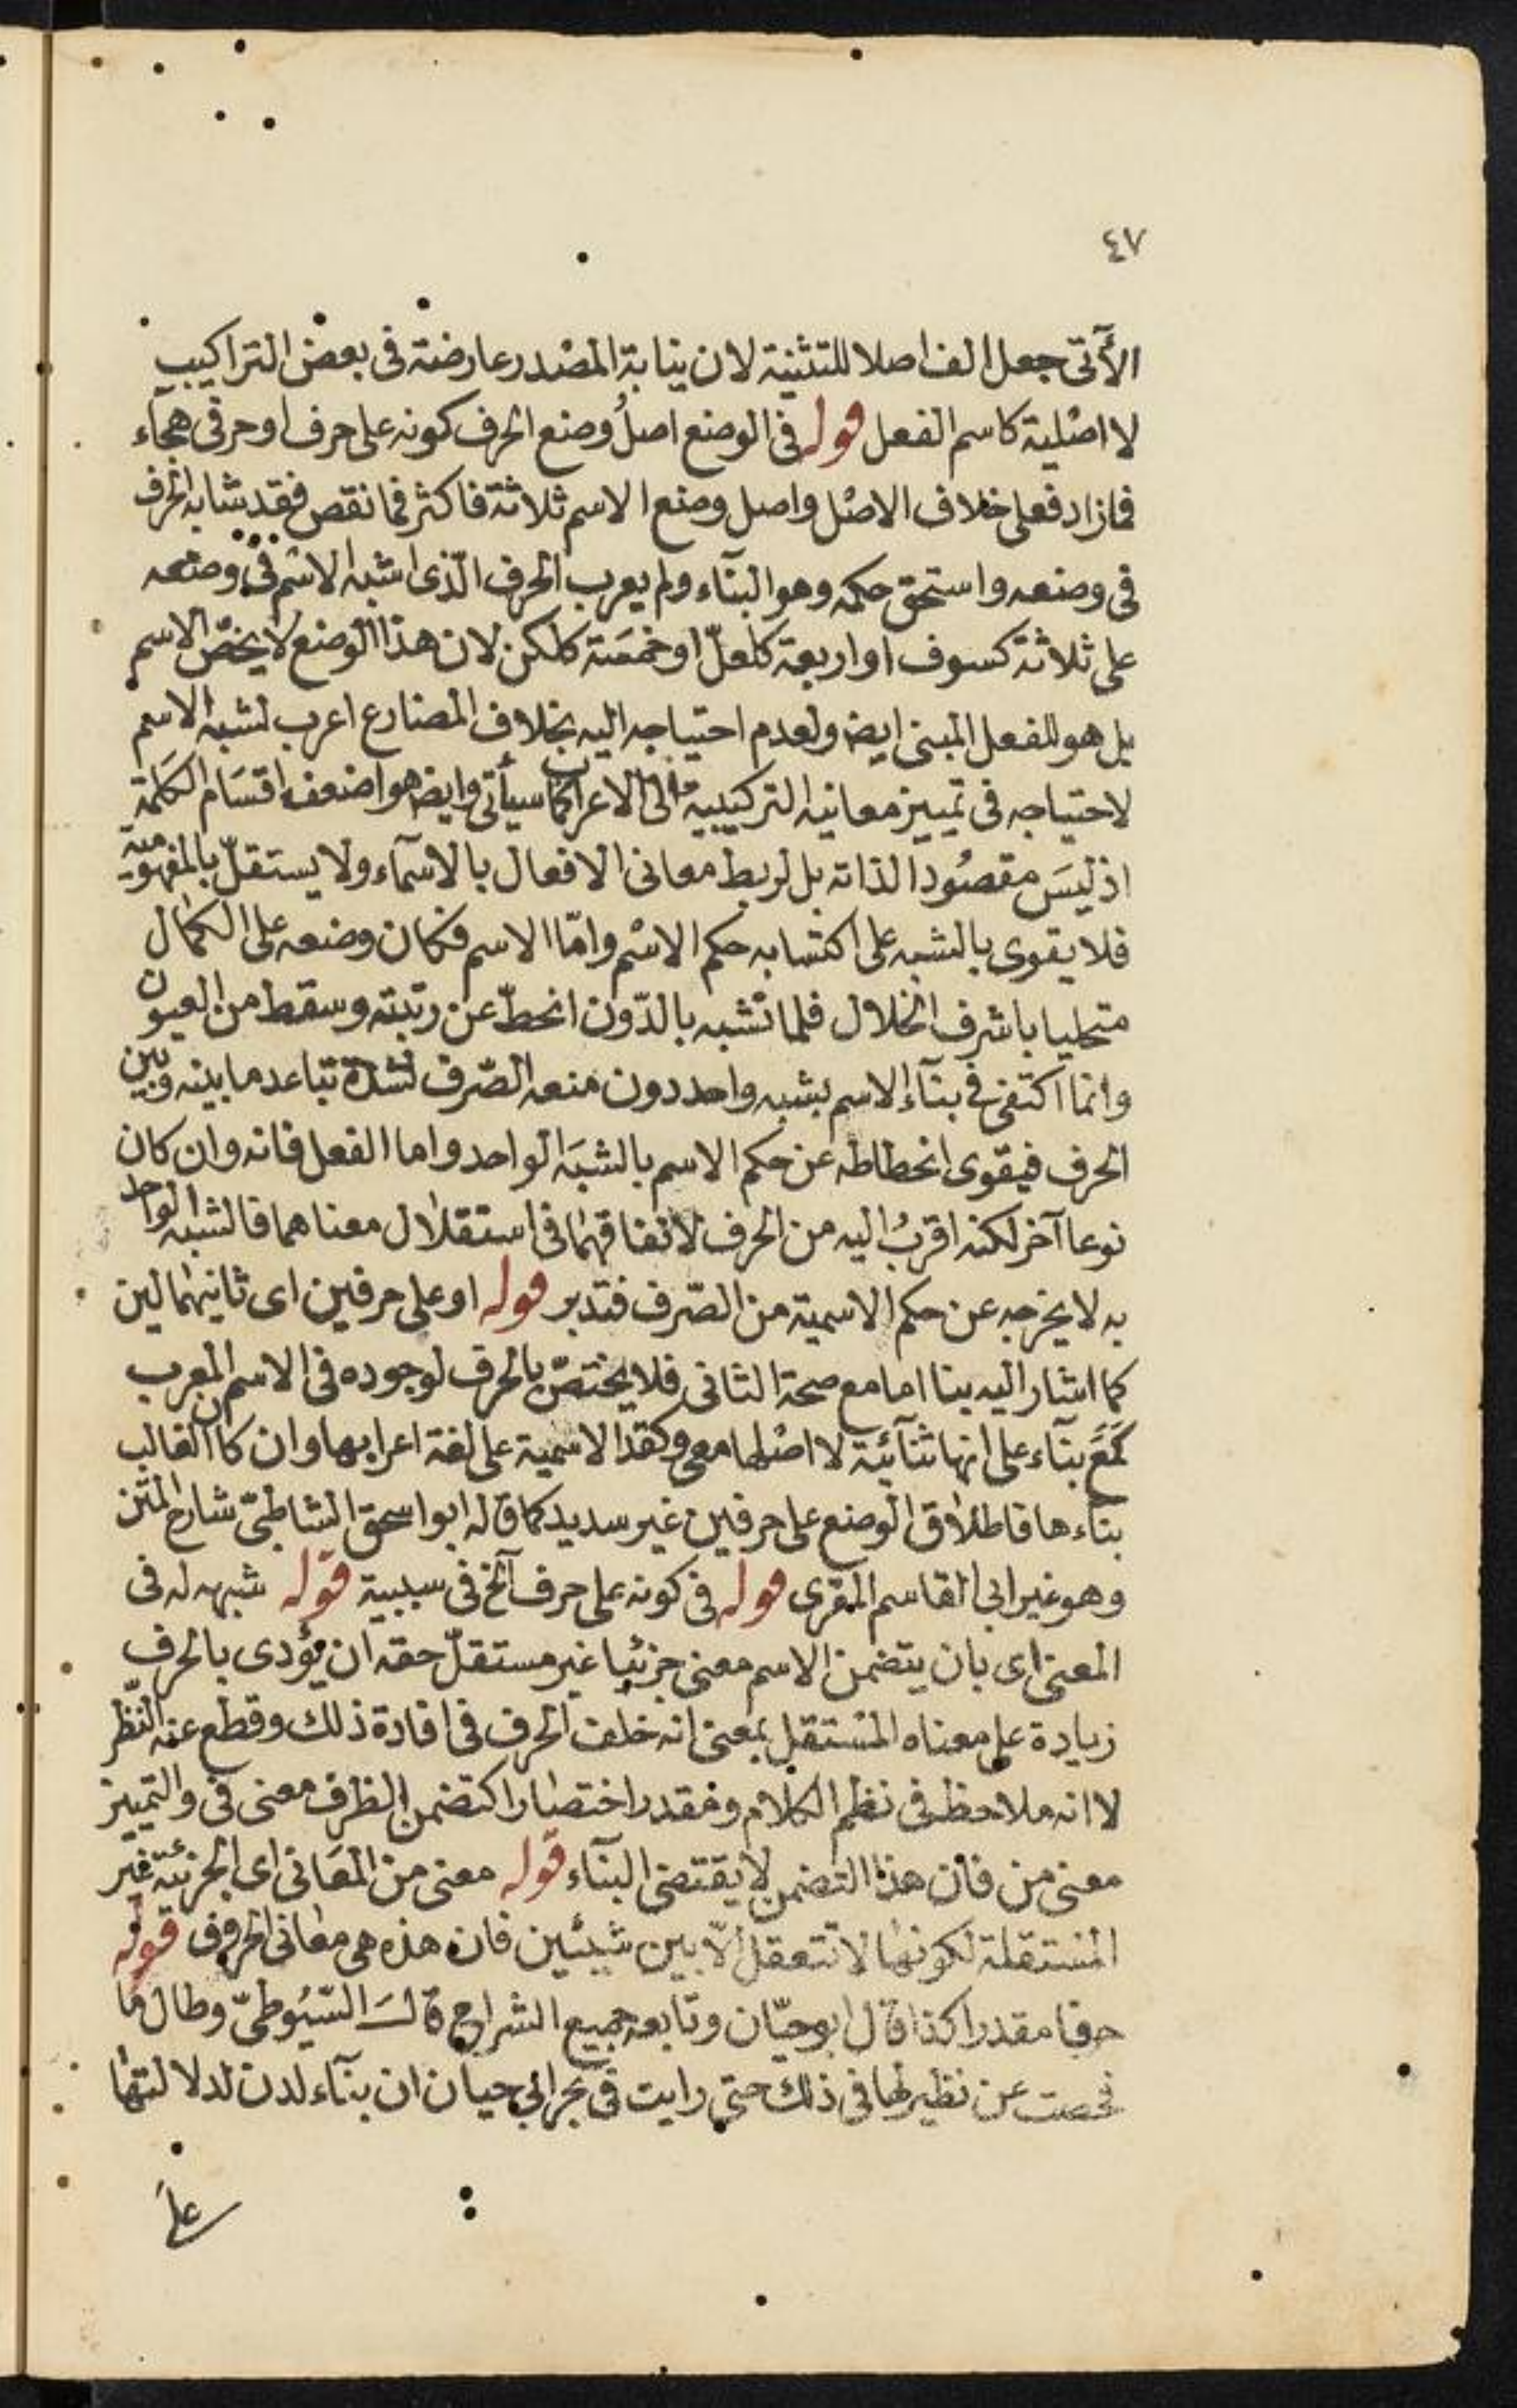 ٤٧
الآتى جعل الف اصلا للتثنية لان ينابة المصدر عارضة فى بعض التراكيب
لا اصلية كاسم الفعل قوله فى الوضع اصلُ وضع الحرف كونه على حرف او حرفى هجآء
فمازاد فعلى خلاف الاصل واصل وضع الاسم ثلاثة فاكثر فما نقص فقد شابه الحرف
فى وضعه واستحق حكمه وهو البنآء ولم يعرب الحرف الّذى اشبه الاسم فى وضعه
على ثلاثة كسوف او اربعة كلعلّ او خمسة كلكن لان هذا الوضع لا يخصّ الاسم
بل هو للفعل المبنى ايضا ولعدم احتياجه اليه بخلاف المضارع اعرب لشبه الاسم
لاحتياجه فى تمييز معانيه التركيبية الى الاعراب كما سيأتى وايضا هو اضعف اقسام الكلمة
اذ ليسَ مقصُودا لذاته بل لربط معانى الافعال بالاسمآء ولا يستقلّ بالمفهومية
فلا يقوى بالشبه على اكتسابه حكم الاسم وامّا الاسم فكان وضعه على الكمال
متحليا باشرف الخلال فلما تشبه بالدّون انحطّ عن رتبته وسقط من العيون
وانما اكتفى فى بنآء الاسم بشبه واحد دون منعه الصّرف لشدة تباعد ما بينه وبين
الحرف فيقوى انحطاطه عن حكم الاسم بالشبَه الواحد واما الفعل فانه وان كان
نوعا آخر لكنه اقربُ اليه من الحرف لاتفاقهما فى استقلال معناهما فالشبه الواحد
به لا يخرجه عن حكم الاسمية من الصّرف فتدبر قوله او على حرفين اى ثانيهما لين
كما اشار اليه بنا اما مع صحة الثانى فلا يختصّ بالحرف لوجوده فى الاسم المعرب
كمَعَ بنآء على انها ثنآئية لا اصلها معى وكقد الاسمية على لغة اعرابها وان كان الغالب
بنآءها فاطلاق الوضع على حرفين غير سديد كما قاله ابو اسحق الشاطبىّ شارح المتن
وهو غير ابى القاسم المقرى قوله فى كونه على حرف آلخ فى سببية قوله شبهه له فى
المعنى اى بان يتضمن الاسم معنى جزئيا غير مستقلّ حقه ان يؤدى بالحرف
زيادة على معناه المستقل بمعنى انه خلف الحرف فى افادة ذلك وقطع عنه النّظر
لا انه ملاحظ فى نظم الكلام ومقدر اختصارا كتضمن الظرف معنى فى والتمييز
معنى من فان هذا التضمن لا يقتضى البنآء قوله معنى من المعَانى اى الجزئية غير
المستقلة لكونها لا تتعقل الّا بين شيئين فان هذه هى معانى الحروف قوله
حرفا مقدرا كذا قال ابو حيّان وتابعه جميع الشراح قالـَـ السّيُوطىّ وطال ما
فحصت عن نظير لها فى ذلك حتى رايت فى بحر ابى حيان ان بنآء لدن لدلالتها
على